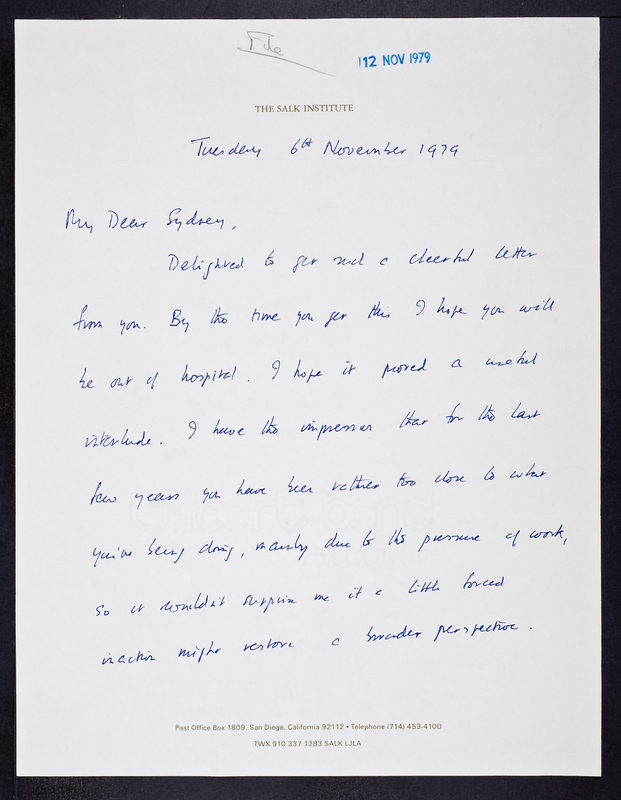 File
12 NOV 1979
THE SALK INSTITUTE
Tuesday 6th November 1979
My Dear Sydney,
Delighted to get such a cheerful letter
from you. By the time you get this I hope you will
be out of hospital. I hope it proved a useful
interlude. I have the impression that for the last
few years you have been rather too close to what
you've being doing, mainly due to the pressure of work,
so it wouldn't surprise me if a little forced
inaction might restore a broader perspective.
Post Office Box 1809, San Diego, California 92112 • Telephone (714) 453-4100
TWX 910 337 1283 SALK LJLA